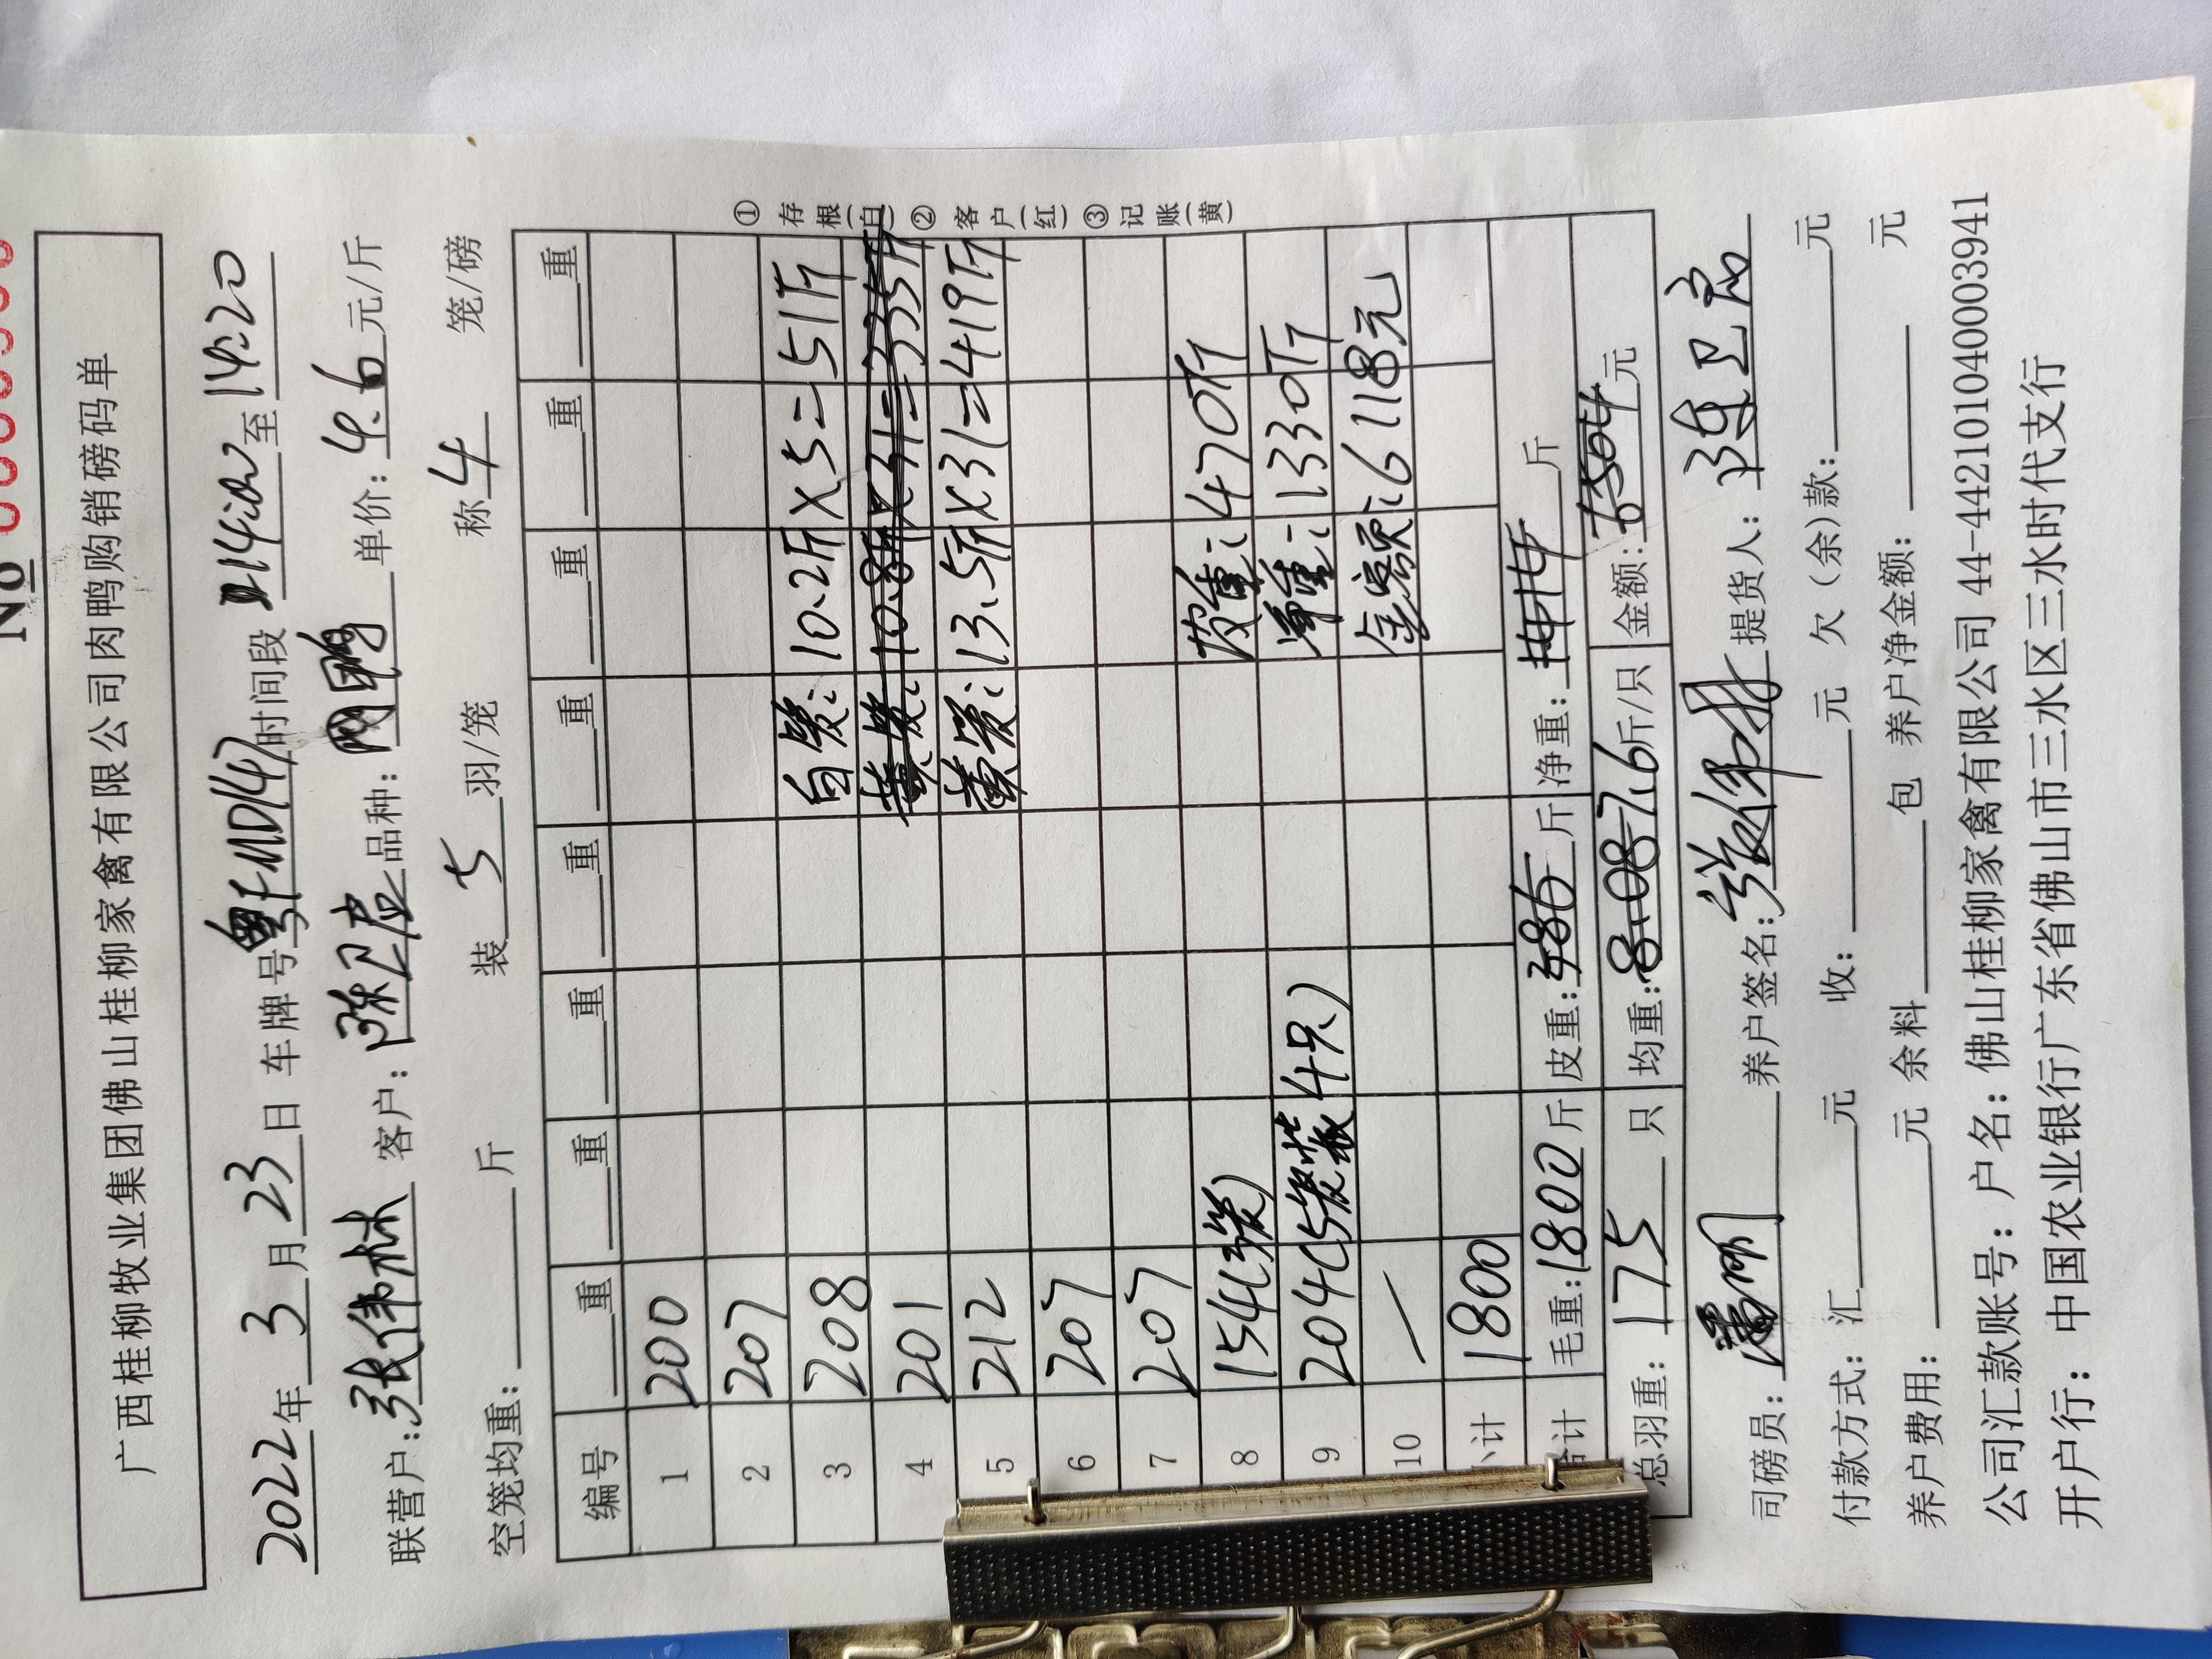 No
广西桂柳牧业集团佛山桂柳家禽有限公司肉鸭购销磅码单
2022年3月23日 车牌号粤FMD147时间段 14:02至14:20
联营户:张伟林 客户: 陈卫 品种: 单价:4.6元/斤
空笼均重: 斤 装5羽/笼 称4笼/磅
编号 重 重 重 重 重 重 重 重
1 200
2 207
3 208 白笼:10.2斤×5=51斤
4 201 黄笼:10.8斤×31=335斤
5 212 黄笼:13.5斤×31=419斤
6 207
7 207
8 154(3笼) 皮重:470斤
9 204(5笼装4只) 净重:1330斤
10 — 金额:6118元
小计 1800
合计 毛重:1800斤 皮重:386斤 净重:1414斤
总羽重: 175 只 均重:8.08 7.6斤/只 金额:6504元
司磅员: 养户签名:张伟林 提货人: 陈卫
付款方式: 汇 元 收: 元 欠(余)款: 元
养户费用: 元 余料 包 养户净金额: 元
公司汇款账号: 户名: 佛山桂柳家禽有限公司 44-442101040003941
开户行: 中国农业银行广东省佛山市三水区三水时代支行
①存根(白)②客户(红)③记账(黄)